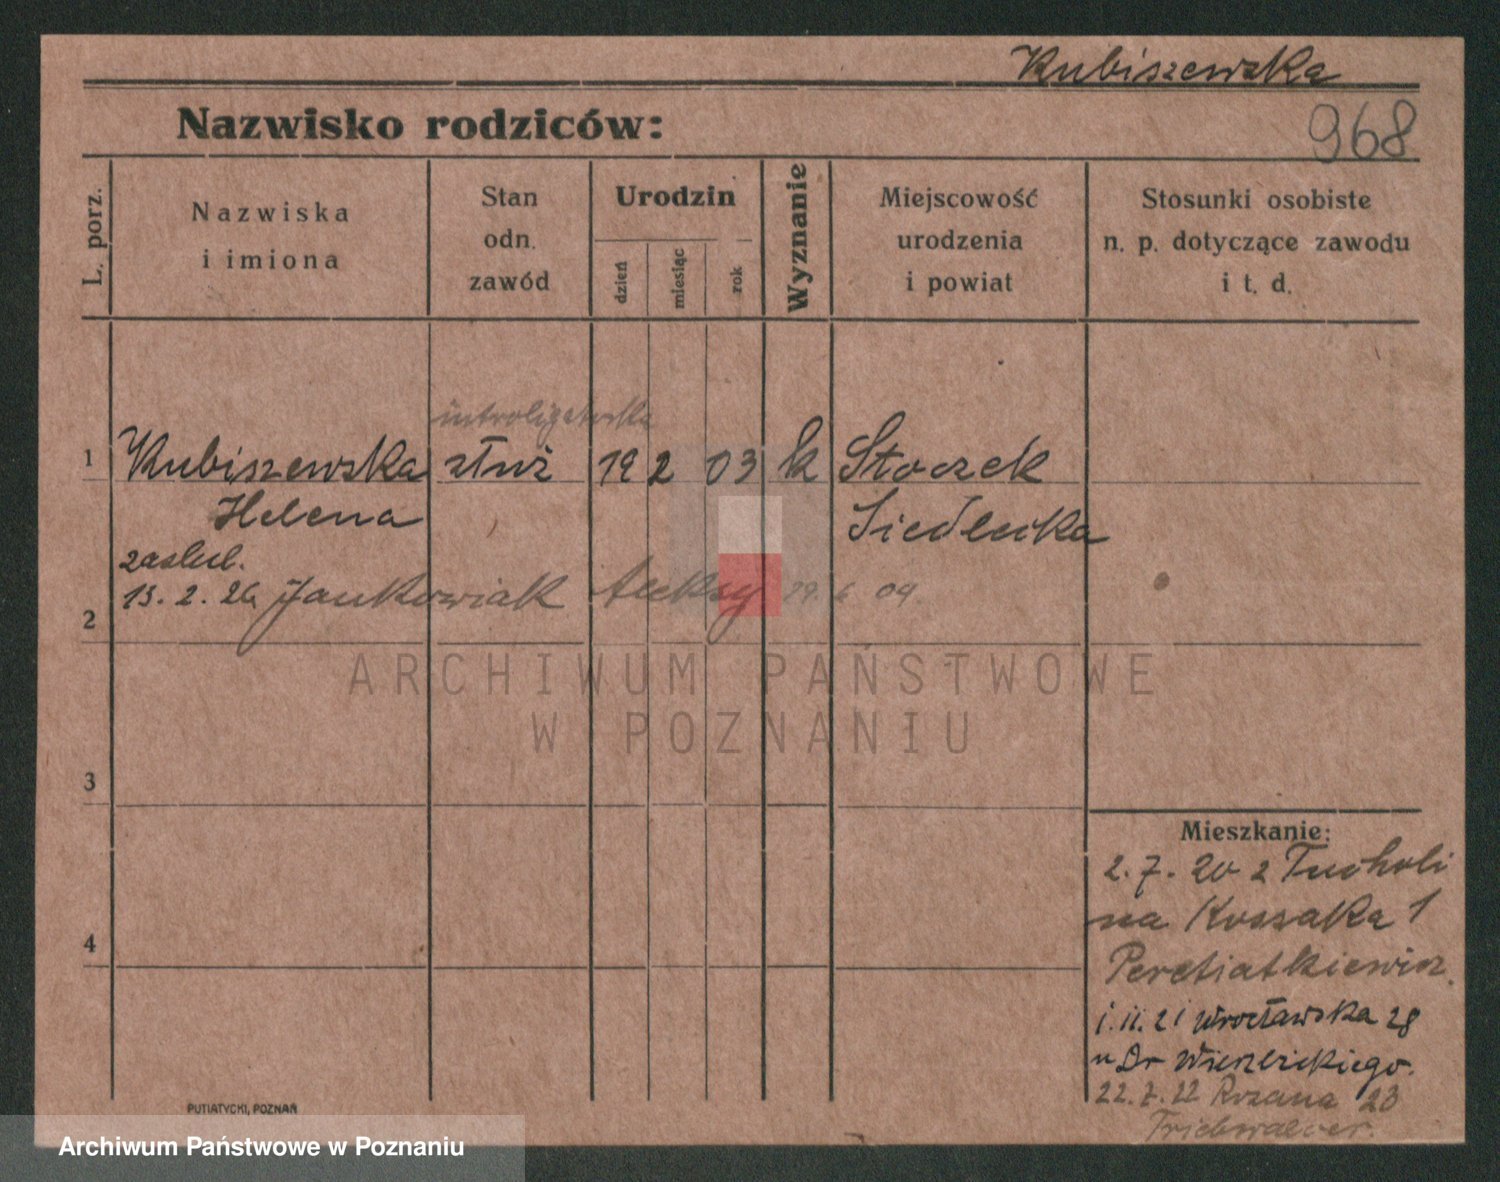 Kubiszewska
Nazwisko rodziców:
968
L. porz.
Nazwiska
i imiona
Stan
odn.
zawód
Urodzin
dzień
miesiąc
rok
Wyznanie
Miejscowość
urodzenia
i powiat
Stosunki osobiste
n. p. dotyczące zawodu
i t. d.
introligatorka
1 Kubiszewska służ 19 2 03 k Stoczek
Helena Siedlecka
zaslub.
13. 2. 26 Jankowiak Aleksy 29. 6 09.
2
ARCHIWUM PAŃSTWOWE
W POZNANIU
3
Mieszkanie:
2. 7. 20 z Tucholi
na Kossaka 1
4
Peretiatkiewicz.
1. 11. 21 Wrocławska 28
u Dr
22. 7. 22 Różana 23
PUTIATYCKI, POZNAŃ
Archiwum Państwowe w Poznaniu